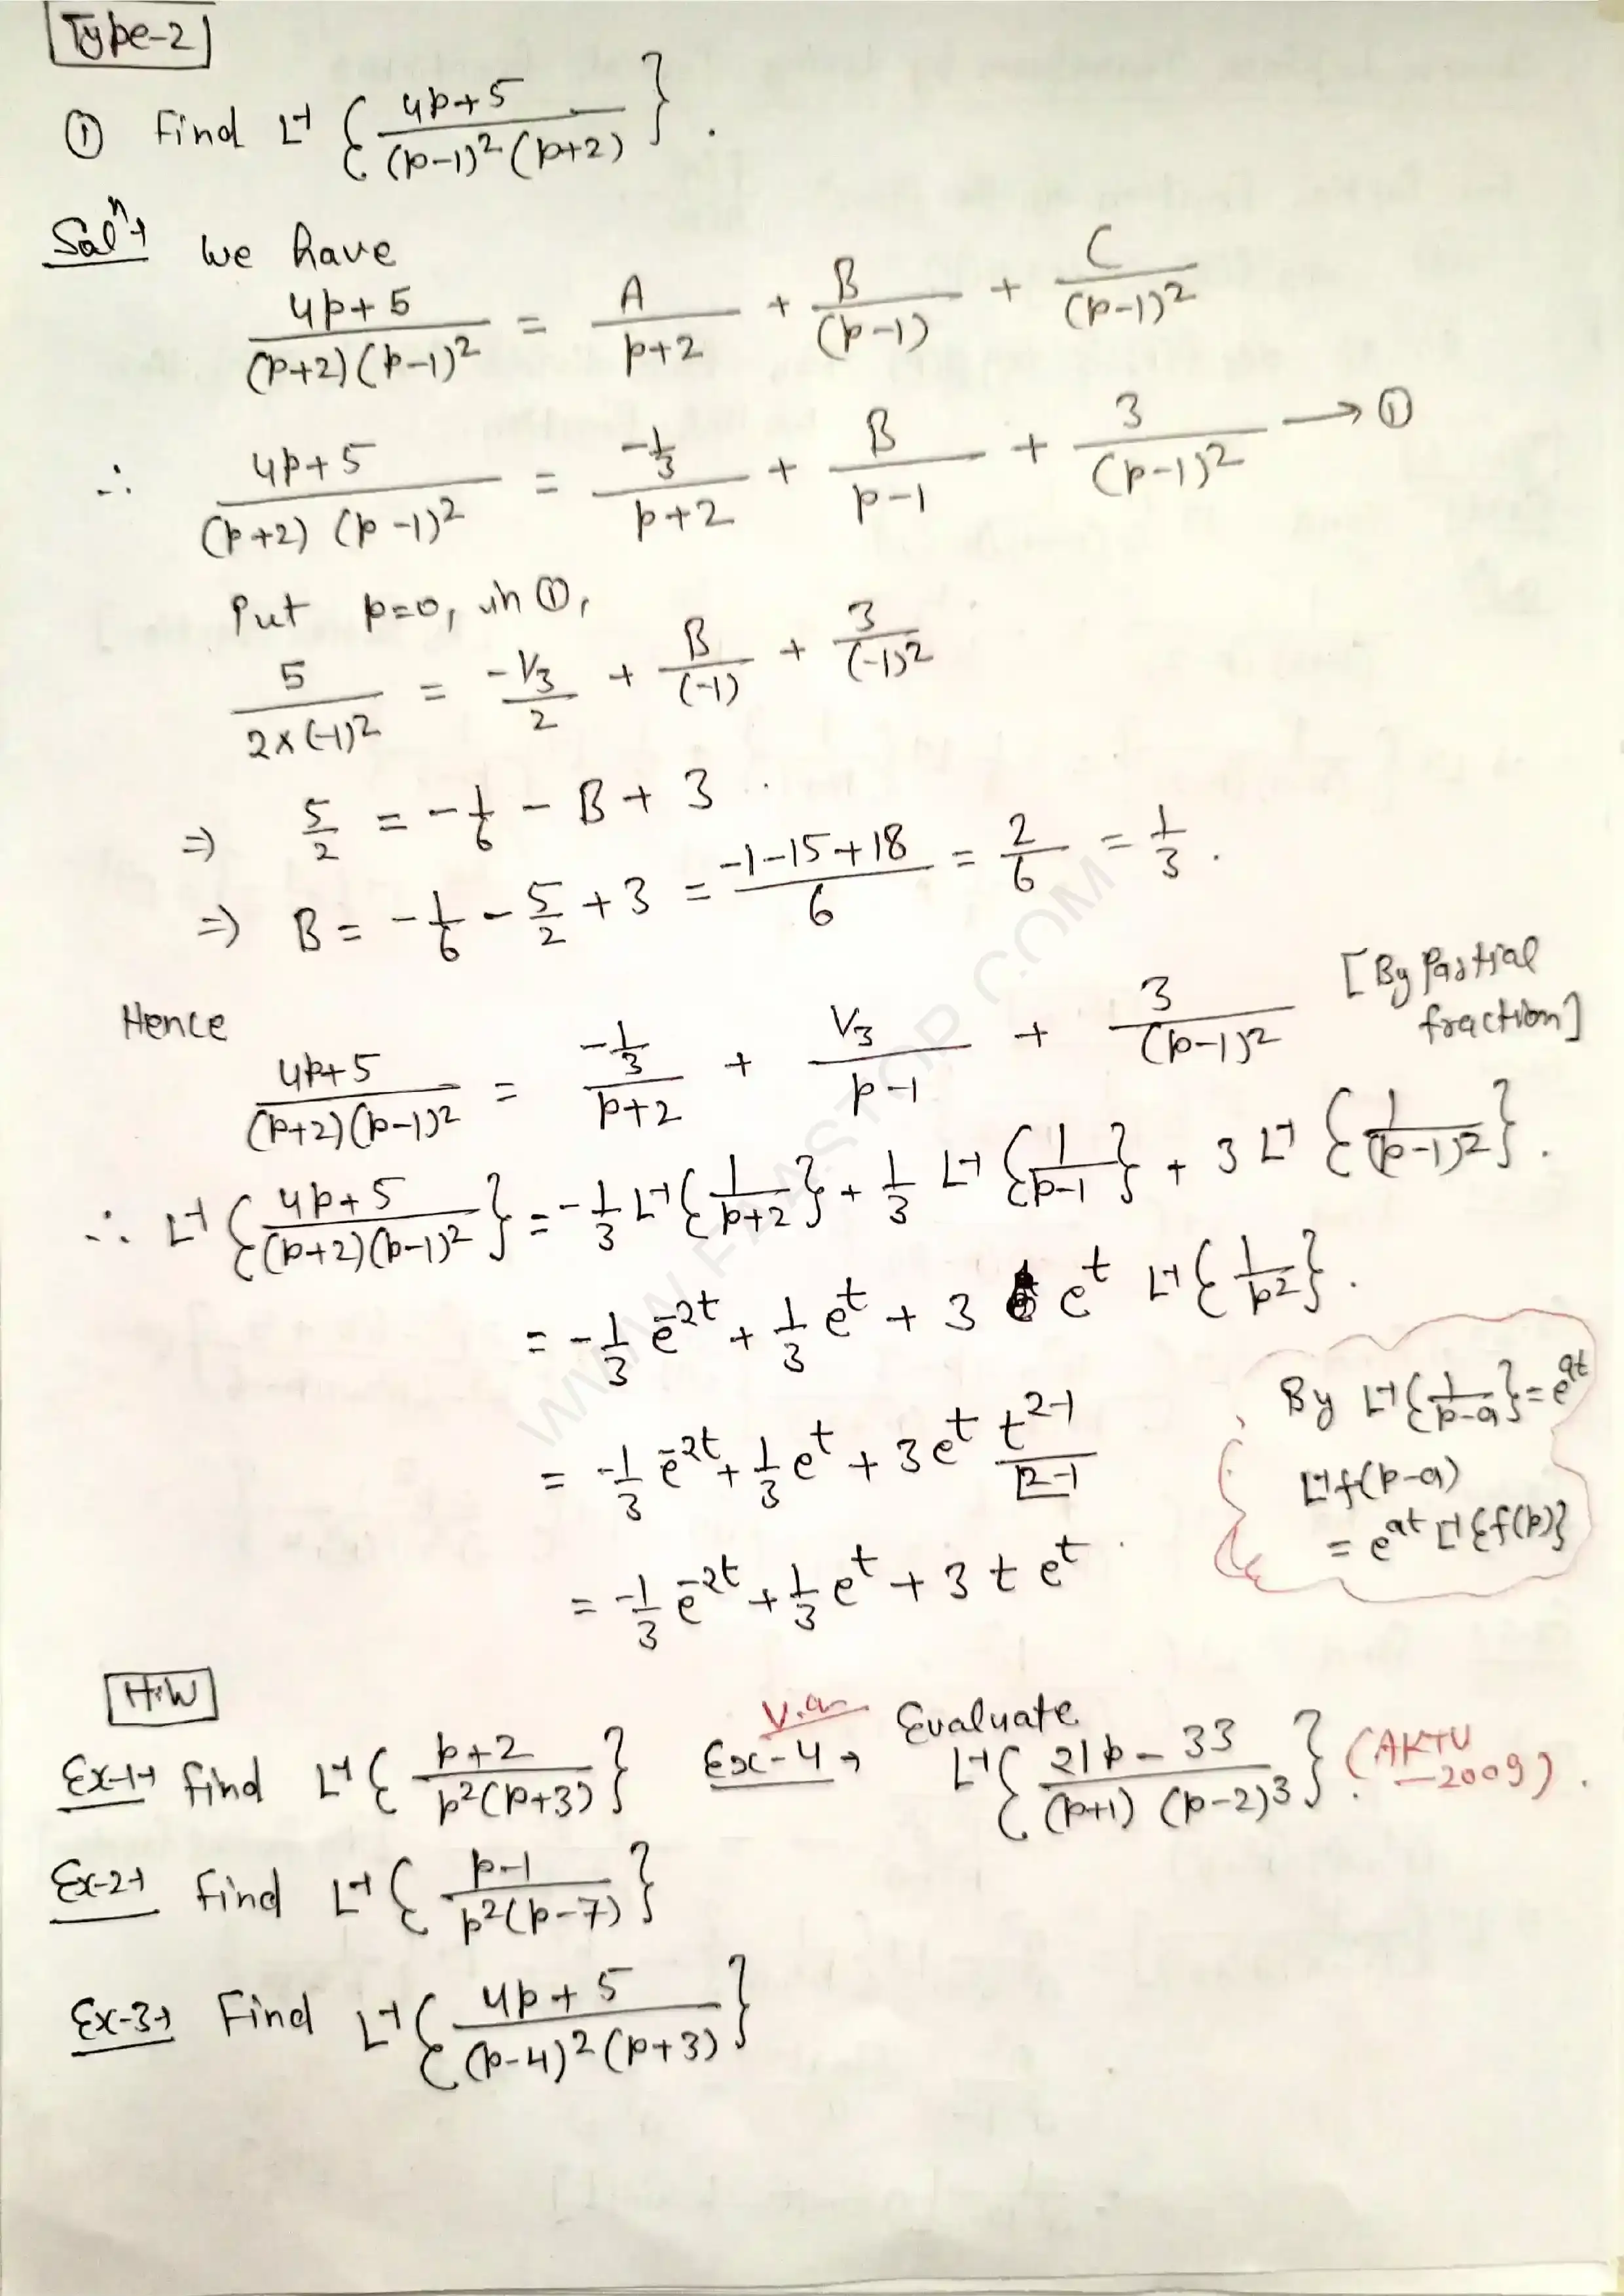 Type-2
① Find L⁻¹ { (4p+5) / ((p-1)² (p+2)) } .
Solⁿ→ We have
(4p+5) / ((p+2)(p-1)²) = A/(p+2) + B/(p-1) + C/(p-1)²
∴ (4p+5) / ((p+2)(p-1)²) = (-1/3)/(p+2) + B/(p-1) + 3/(p-1)² → ①
Put p=0, in ①,
5/(2×(-1)²) = (-1/3)/2 + B/(-1) + 3/(-1)²
⇒ 5/2 = -1/6 - B + 3
⇒ B = -1/6 - 5/2 + 3 = (-1-15+18)/6 = 2/6 = 1/3 .
Hence
(4p+5) / ((p+2)(p-1)²) = (-1/3)/(p+2) + (1/3)/(p-1) + 3/(p-1)² [By Partial fraction]
∴ L⁻¹ { (4p+5) / ((p+2)(p-1)²) } = -1/3 L⁻¹{ 1/(p+2) } + 1/3 L⁻¹{ 1/(p-1) } + 3 L⁻¹{ 1/(p-1)² } .
= -1/3 e^-2t + 1/3 e^t + 3 e^t L⁻¹{ 1/p² } .
= -1/3 e^-2t + 1/3 e^t + 3e^t t^(2-1) / |2-1
= -1/3 e^-2t + 1/3 e^t + 3 t e^t
By L⁻¹{ 1/(p-a) } = e^at
L⁻¹ f(p-a)
= e^at L⁻¹{f(p)}
H.W
Ex-1→ find L⁻¹ { (p+2) / (p²(p+3)) }
Ex-2→ find L⁻¹ { (p-1) / (p²(p-7)) }
Ex-3→ Find L⁻¹ { (4p+5) / ((p-4)² (p+3)) }
Ex-4→ Evaluate
L⁻¹ { (21p-33) / ((p+1) (p-2)³) } . (AKTU -2009) .
WWW.FAASTOP.COM